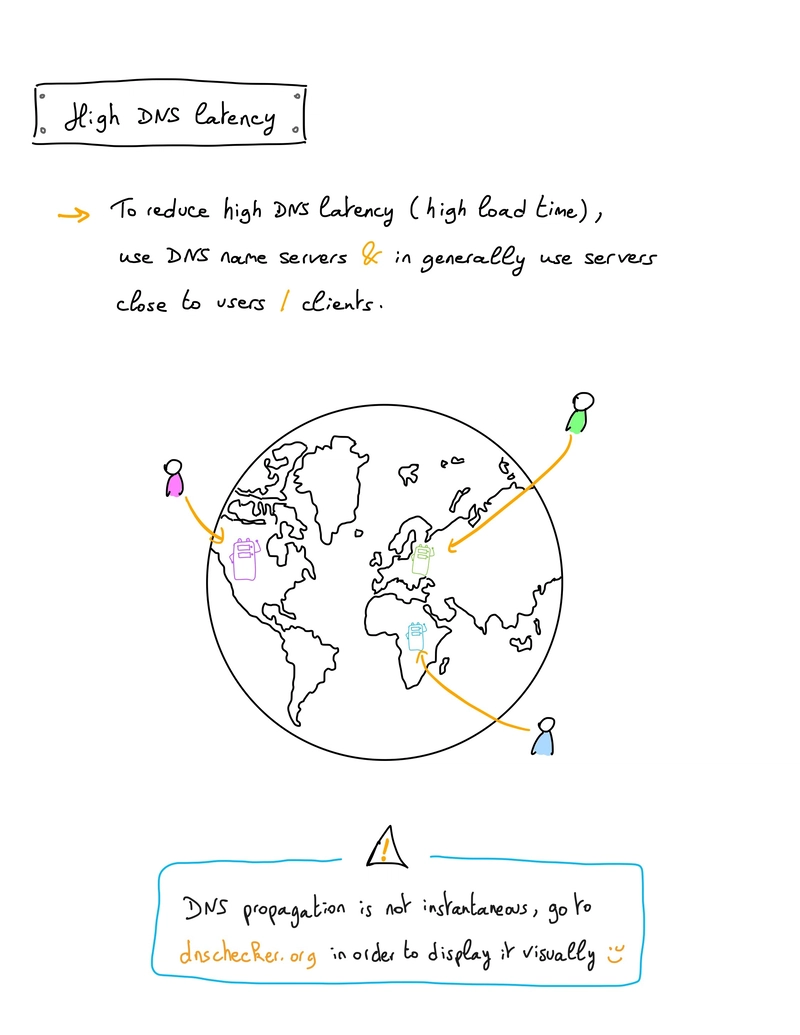 High DNS latency
→ To reduce high DNS latency (high load time),
use DNS name servers & in generally use servers
close to users / clients.
!
DNS propagation is not instantaneous, go to
dnschecker.org in order to display it visually